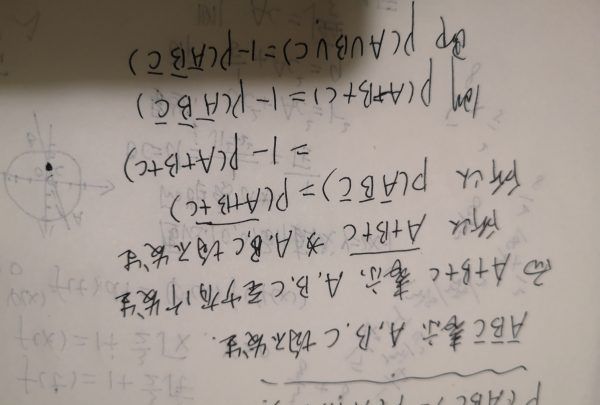 A̅B̅C̅ 表示 A,B,C 均不发生.
而 A+B+C 表示 A,B,C至少有1个发生
所以 \overline{A+B+C} 为 A,B,C均不发生
所以 P(A̅B̅C̅) = P(\overline{A+B+C})
= 1-P(A+B+C)
P(A+B+C) = 1-P(A̅B̅C̅)
即 P(A∪B∪C) = 1-P(A̅B̅C̅)